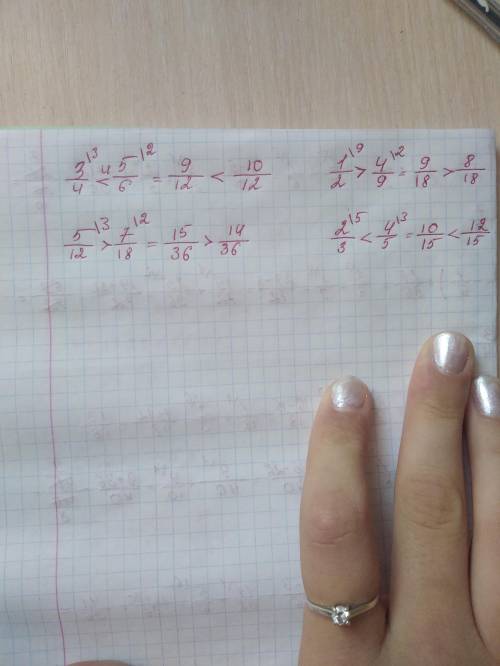 3/4 \3 < и 5/6 \2 = 9/12 < 10/12
1/2 \9 > 4/9 \2 = 9/18 > 8/18
5/12 \3 > 7/18 \2 = 15/36 > 14/36
2/3 \5 < 4/5 \3 = 10/15 < 12/15